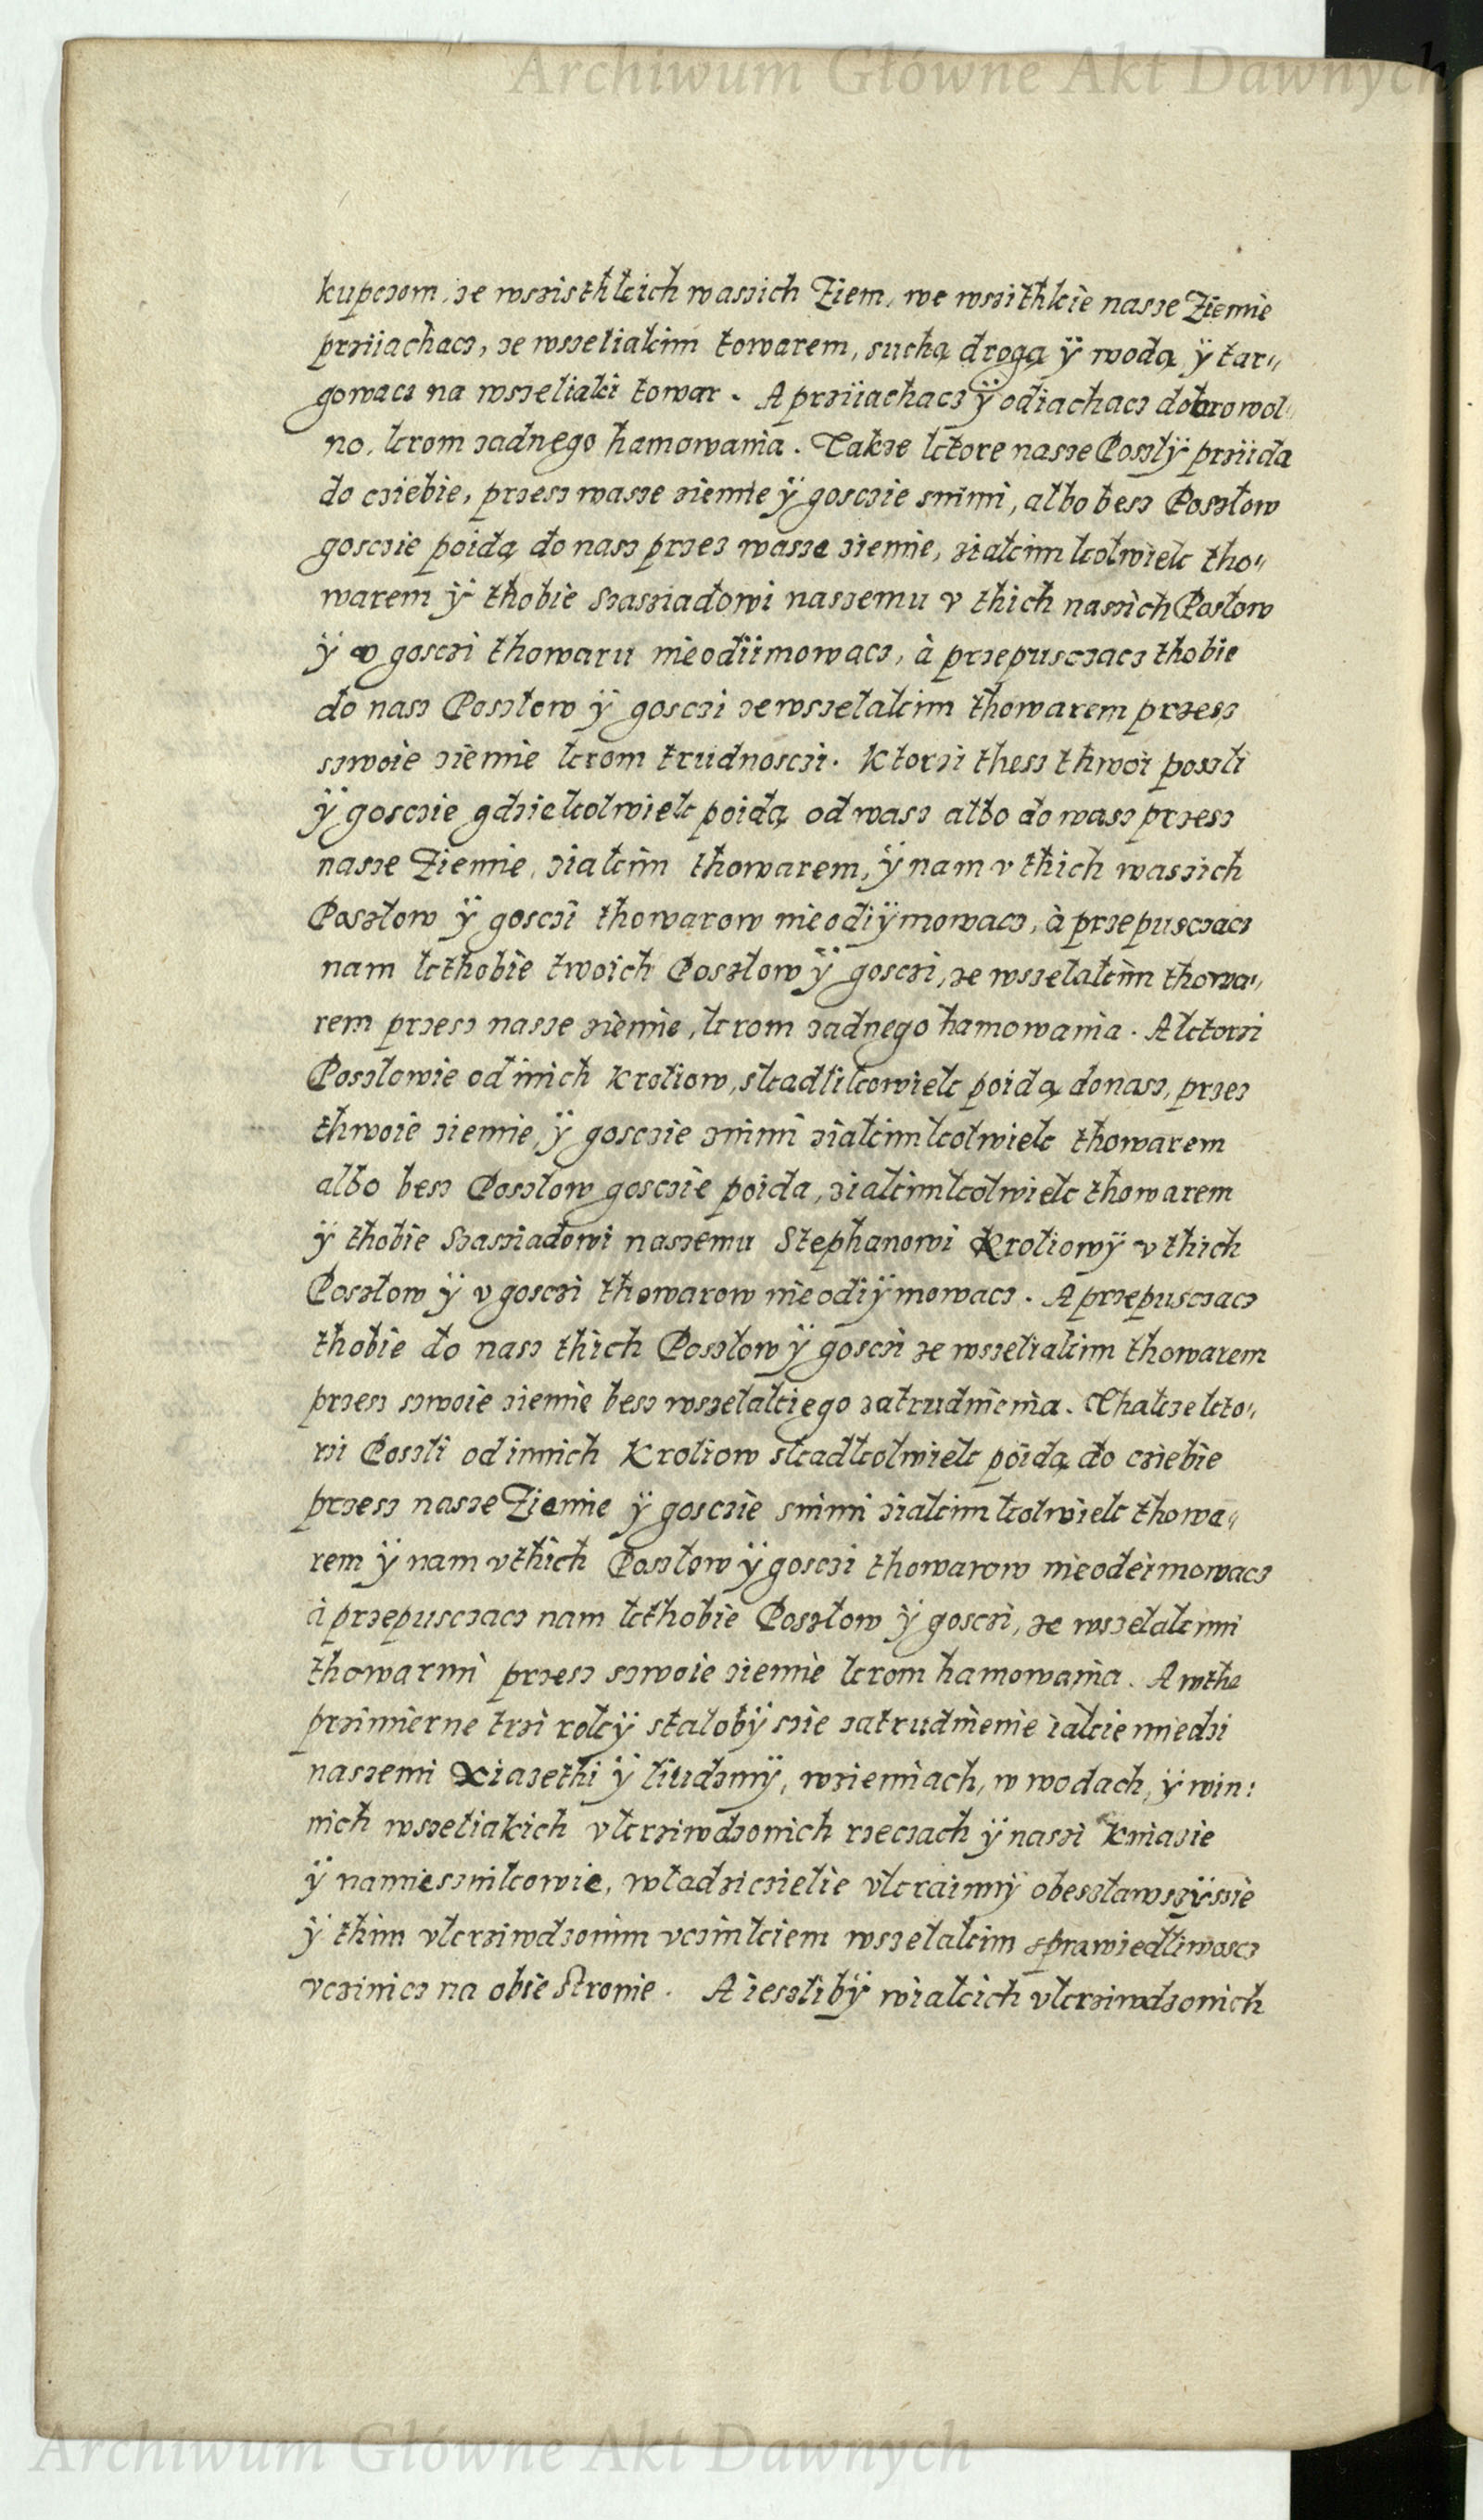 Archiwum Główne Akt Dawnych
kupczom, ze wszisthkich waszich Ziem, we wszithkie nasze Ziemie
prziiachacz, ze wszeliakim towarem, suchą drogą ÿ wodą ÿ tar"
gowacz na wszeliaki towar. A prziiachacz ÿ odiachacz dobrowol"
no, krom zadnego hamowania. Takze ktore nasze Poszlÿ prziida
do cziebie, przesz wasze ziemie ÿ gosczie snimi, albo besz Poszlow
gosczie poidą do nasz przez wasze ziemie, ziakim kolwiek tho"
warem ÿ thobie Szasziadowi naszemu v thich naszich Poslow
ÿ v gosczi thowaru nieodiimowacz, à przepusczacz thobie
do nasz Poszlow ÿ gosczi ze wszelakim thowarem przesz
szwoie ziemie krom trudnosczi. Ktorzi thesz thwoi poszli
ÿ gosczie gdziekolwiek poidą od wasz albo do wasz przesz
nasze Ziemie, ziakim thowarem, ÿ nam v thich waszich
Poszlow ÿ gosczi thowarow nieodiÿmowacz, à przepusczacz
nam kthobie twoich Poszlow ÿ gosczi, ze wszelakim thowa",
rem przesz nasze ziemie, krom zadnego hamowania. A ktorzi
Poszlowie od inich Kroliow, skadlikowiek poidą do nasz, przez
thwoie ziemie, ÿ gosczie znimi ziakimkolwiek thowarem
albo besz Poszlow gosczie poida, ziakimkolwiek thowarem
ÿ thobie Szasziadowi naszemu Stephanowi Kroliowÿ v thich
Poszlow ÿ v gosczi thowarow nieodiÿmowacz. A przepusczacz
thobie do nasz thich Poszlow ÿ gosczi ze wszeliakim thowarem
przesz szwoie ziemie besz wszelakiego zatrudnienia. Thakze kto",
rzi Poszli od innich Kroliow skadkolwiek poidą do cziebie
przesz nasze Ziemie ÿ gosczie snimi ziakim kolwiek thowa"
rem ÿ nam v thich Poszlow ÿ gosczi thowarow nieodeimowacz
à przepusczacz nam kthobie Poszlow ÿ gosczi, ze wszelakimi
thowarmi przesz szwoie ziemie krom hamowania. A wthe
przimierne trzi rokÿ stalobÿ szie zatrudnienie iakie miedzi
naszemi Xiazethi ÿ liudzmÿ, wziemiach, w wodach, ÿ win:
nich wszeliakich vkrziwdzonich rzeczach ÿ naszi Kniazie
ÿ namieszinikowie, wladziczielie vkrainnÿ obeszlawszÿ szie
ÿ thim vkrziwdzonim vczinkiem wszelakim sprawiedliwoscz
vczinicz na obie stronie. A ieszlibÿ wiakich vkrziwdzonich
Archiwum Główne Akt Dawnych